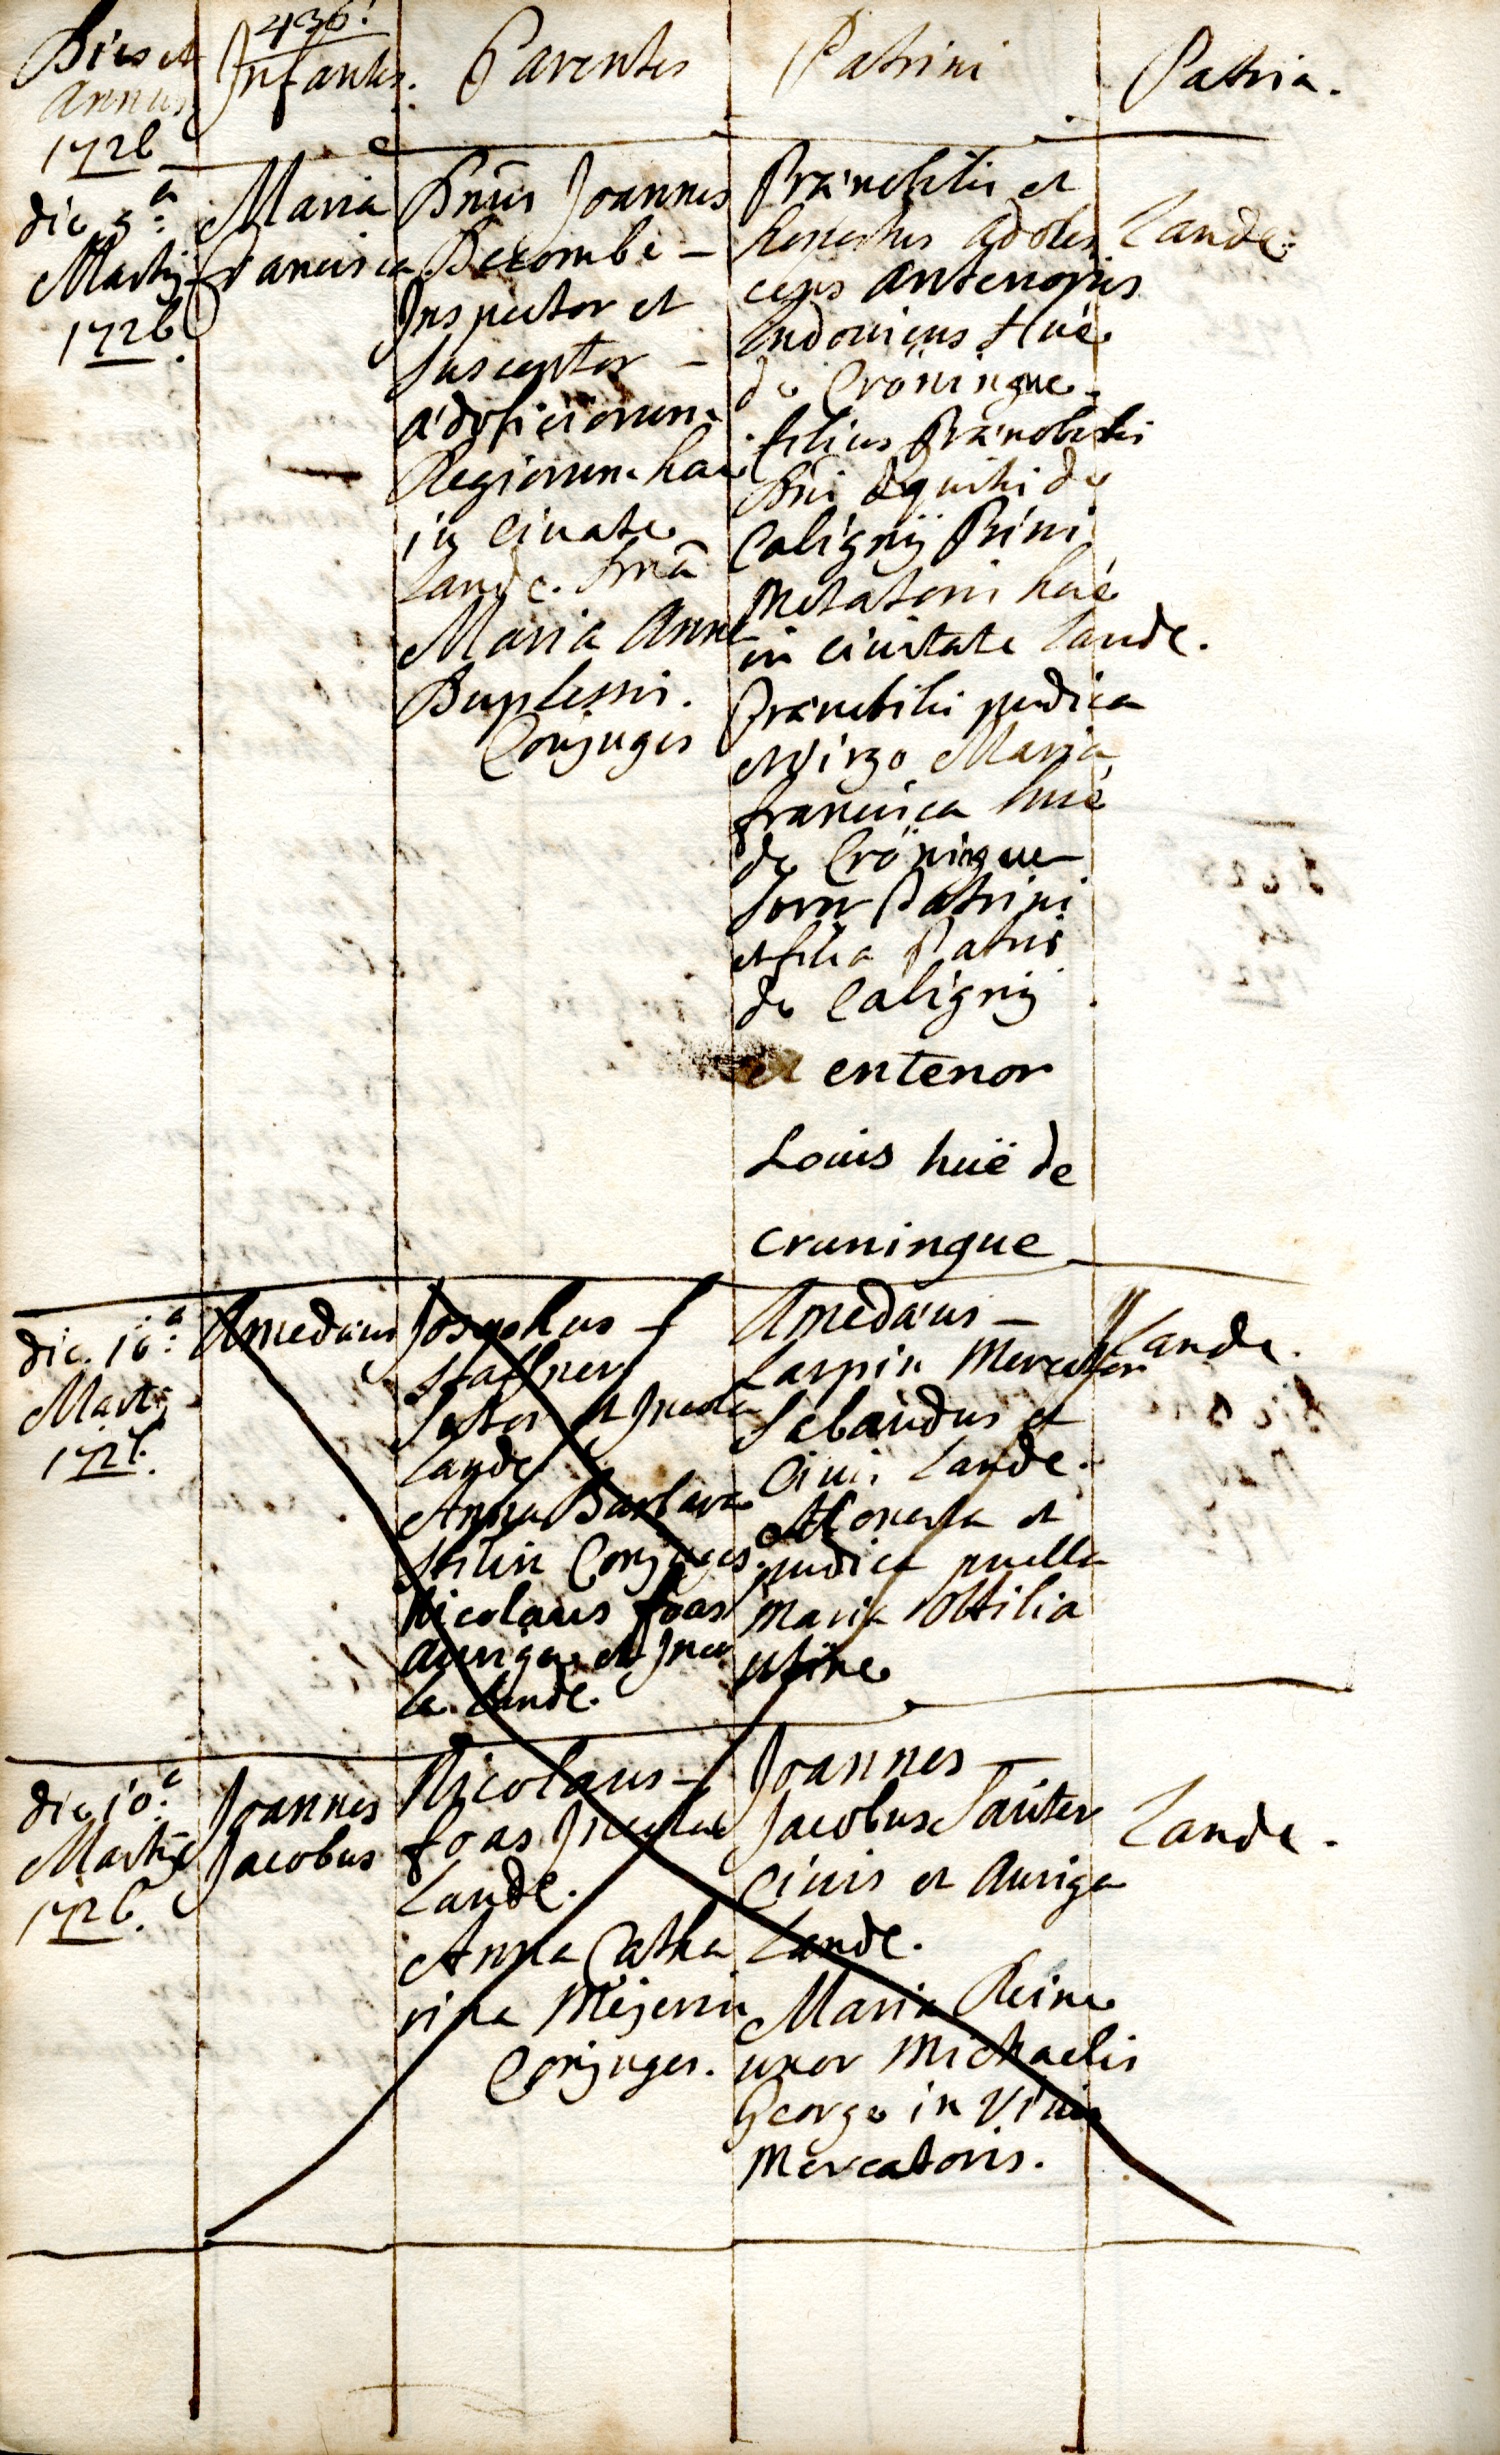 436.
Dies et
Annus
1726
Infantes.
Parentes
Patrini
Patria.
die 9.a
Martij
1726
Maria
Francisca
Dnus Joannes
Decombe -
Inspector et
Susceptor -
ædificiorum
Regiorum hac
in Civate
Landc. Dna
Maria Anne
Duplessi.
Conjuges
Prænobilis et
honestus adoles
cens antenoris
Ludovicus Hüe
de Cröningue.
filius Prænobilis
Dni Equitis de
Caligny Primi
Metatoris hac
in civitate Lande.
Prænobilis pudica
et Virgo Maria
francisca hüe
de Cröningue
Soror Patrini
et filia Patris
de Caligny
entenor
Louis huë de
cruningue
Lande.
die 10.a
Martij
1726.
Amedæus
Josephus -
Staffner
Sutor et Incola
Lande
Anna Barbara
Stilin Conjuges
Nicolaus foas
auriga et Inco
la Lande.
Amedæus -
Laspin Mercator
Sabaudus et
Civis Lande.
et Honesta et
pudica puella
Maria Ottilia
Lande.
die 10.a
Martij
1726.
Joannes
Jacobus
Nicolaus -
foas Incola
Lande.
Anna Catha
rina Meyerin
Conjuges.
Joannes -
Jacobus Sauter
Civis et Auriga
Lande.
Maria Reine
uxor Michaelis
George in Vivis
Mercatoris.
Lande.